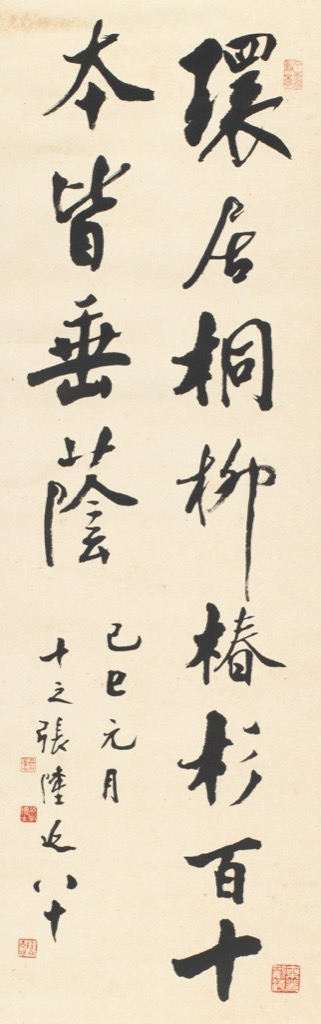 環居桐柳椿杉百十
本皆垂蔭
己巳元月
十之張隆延八十